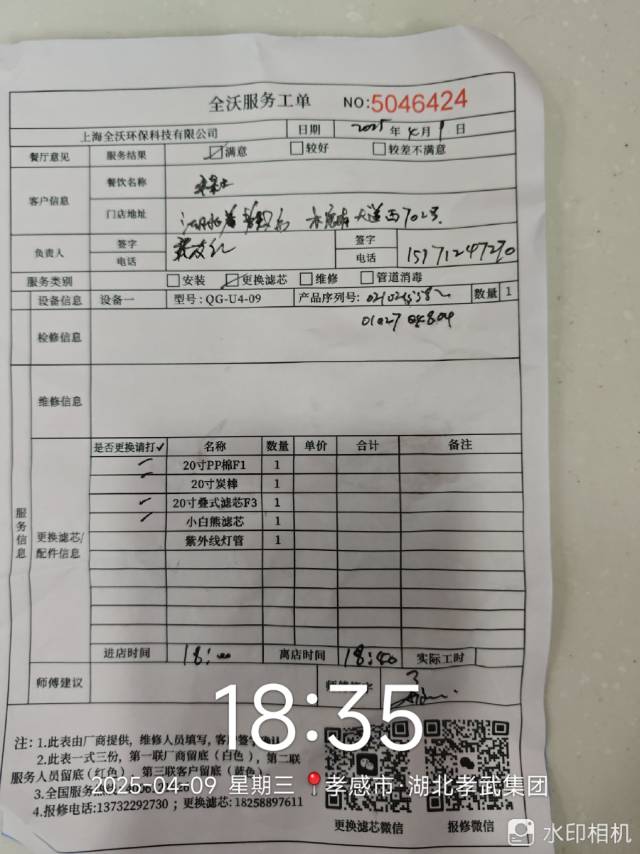 全沃服务工单 NO:5046424
上海全沃环保科技有限公司 日期 2025年4月9日
餐厅意见 服务结果 ☑满意 □较好 □较差不满意
客户信息 餐饮名称
门店地址 大道西702号
负责人 签字 签字
电话 电话 15971247270
服务类别 □安装 ☑更换滤芯 □维修 □管道消毒
设备信息 设备一 型号:QG-U4-09 产品序列号: 数量 1
检修信息
维修信息
服务信息
更换滤芯/配件信息
是否更换请打✓ 名称 数量 单价 合计 备注
✓ 20寸PP棉F1 1
✓ 20寸炭棒 1
✓ 20寸叠式滤芯F3 1
✓ 小白熊滤芯 1
紫外线灯管 1
进店时间 18:00 离店时间 18:40 实际工时
师傅建议
18:35
注: 1.此表由厂商提供，维修人员填写，客户签字确认
2.此表一式三份，第一联厂商留底（白色），第二联
服务人员留底(红色)，第三联客户留底（蓝色）
3.全国服务
2025-04-09 星期三 孝感市·湖北孝武集团
4.报修电话:13732292730；更换滤芯:18258897611
更换滤芯微信 报修微信
水印相机